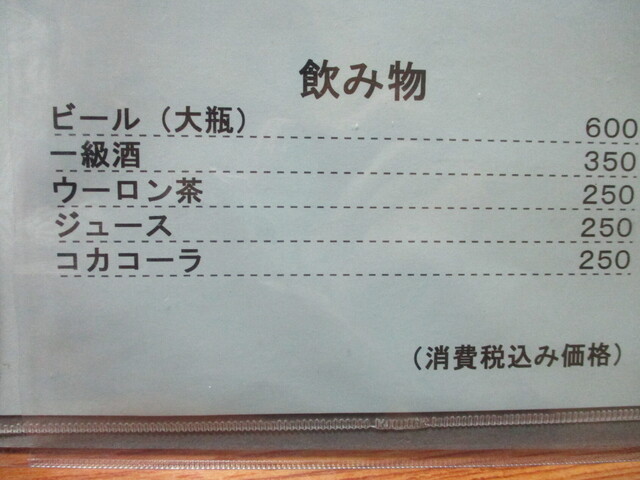 飲み物
ビール（大瓶） 600
一級酒 350
ウーロン茶 250
ジュース 250
コカコーラ 250
（消費税込み価格）